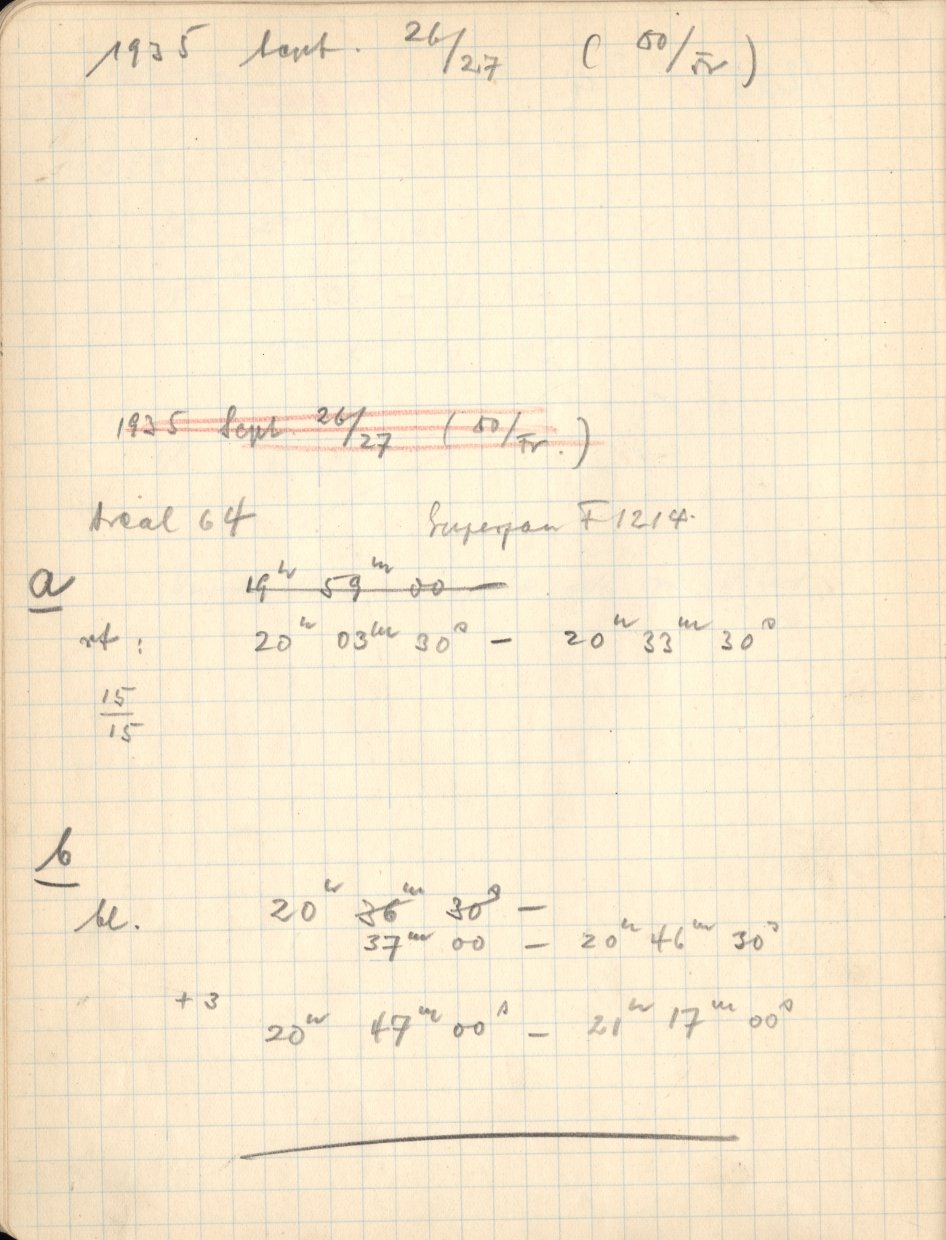 1935 Sept. 26/27 (50/Fr)
1935 Sept 26/27 (50/Fr.)
Areal 64 Superpan F 1214.
a
19h 59m 00 —
rt : 20h 03m 30s — 20h 33m 30s
15/15
b
bl. 20h 36m 30s —
37m 00 — 20h 46m 30s
+ 3
20h 47m 00s — 21h 17m 00s